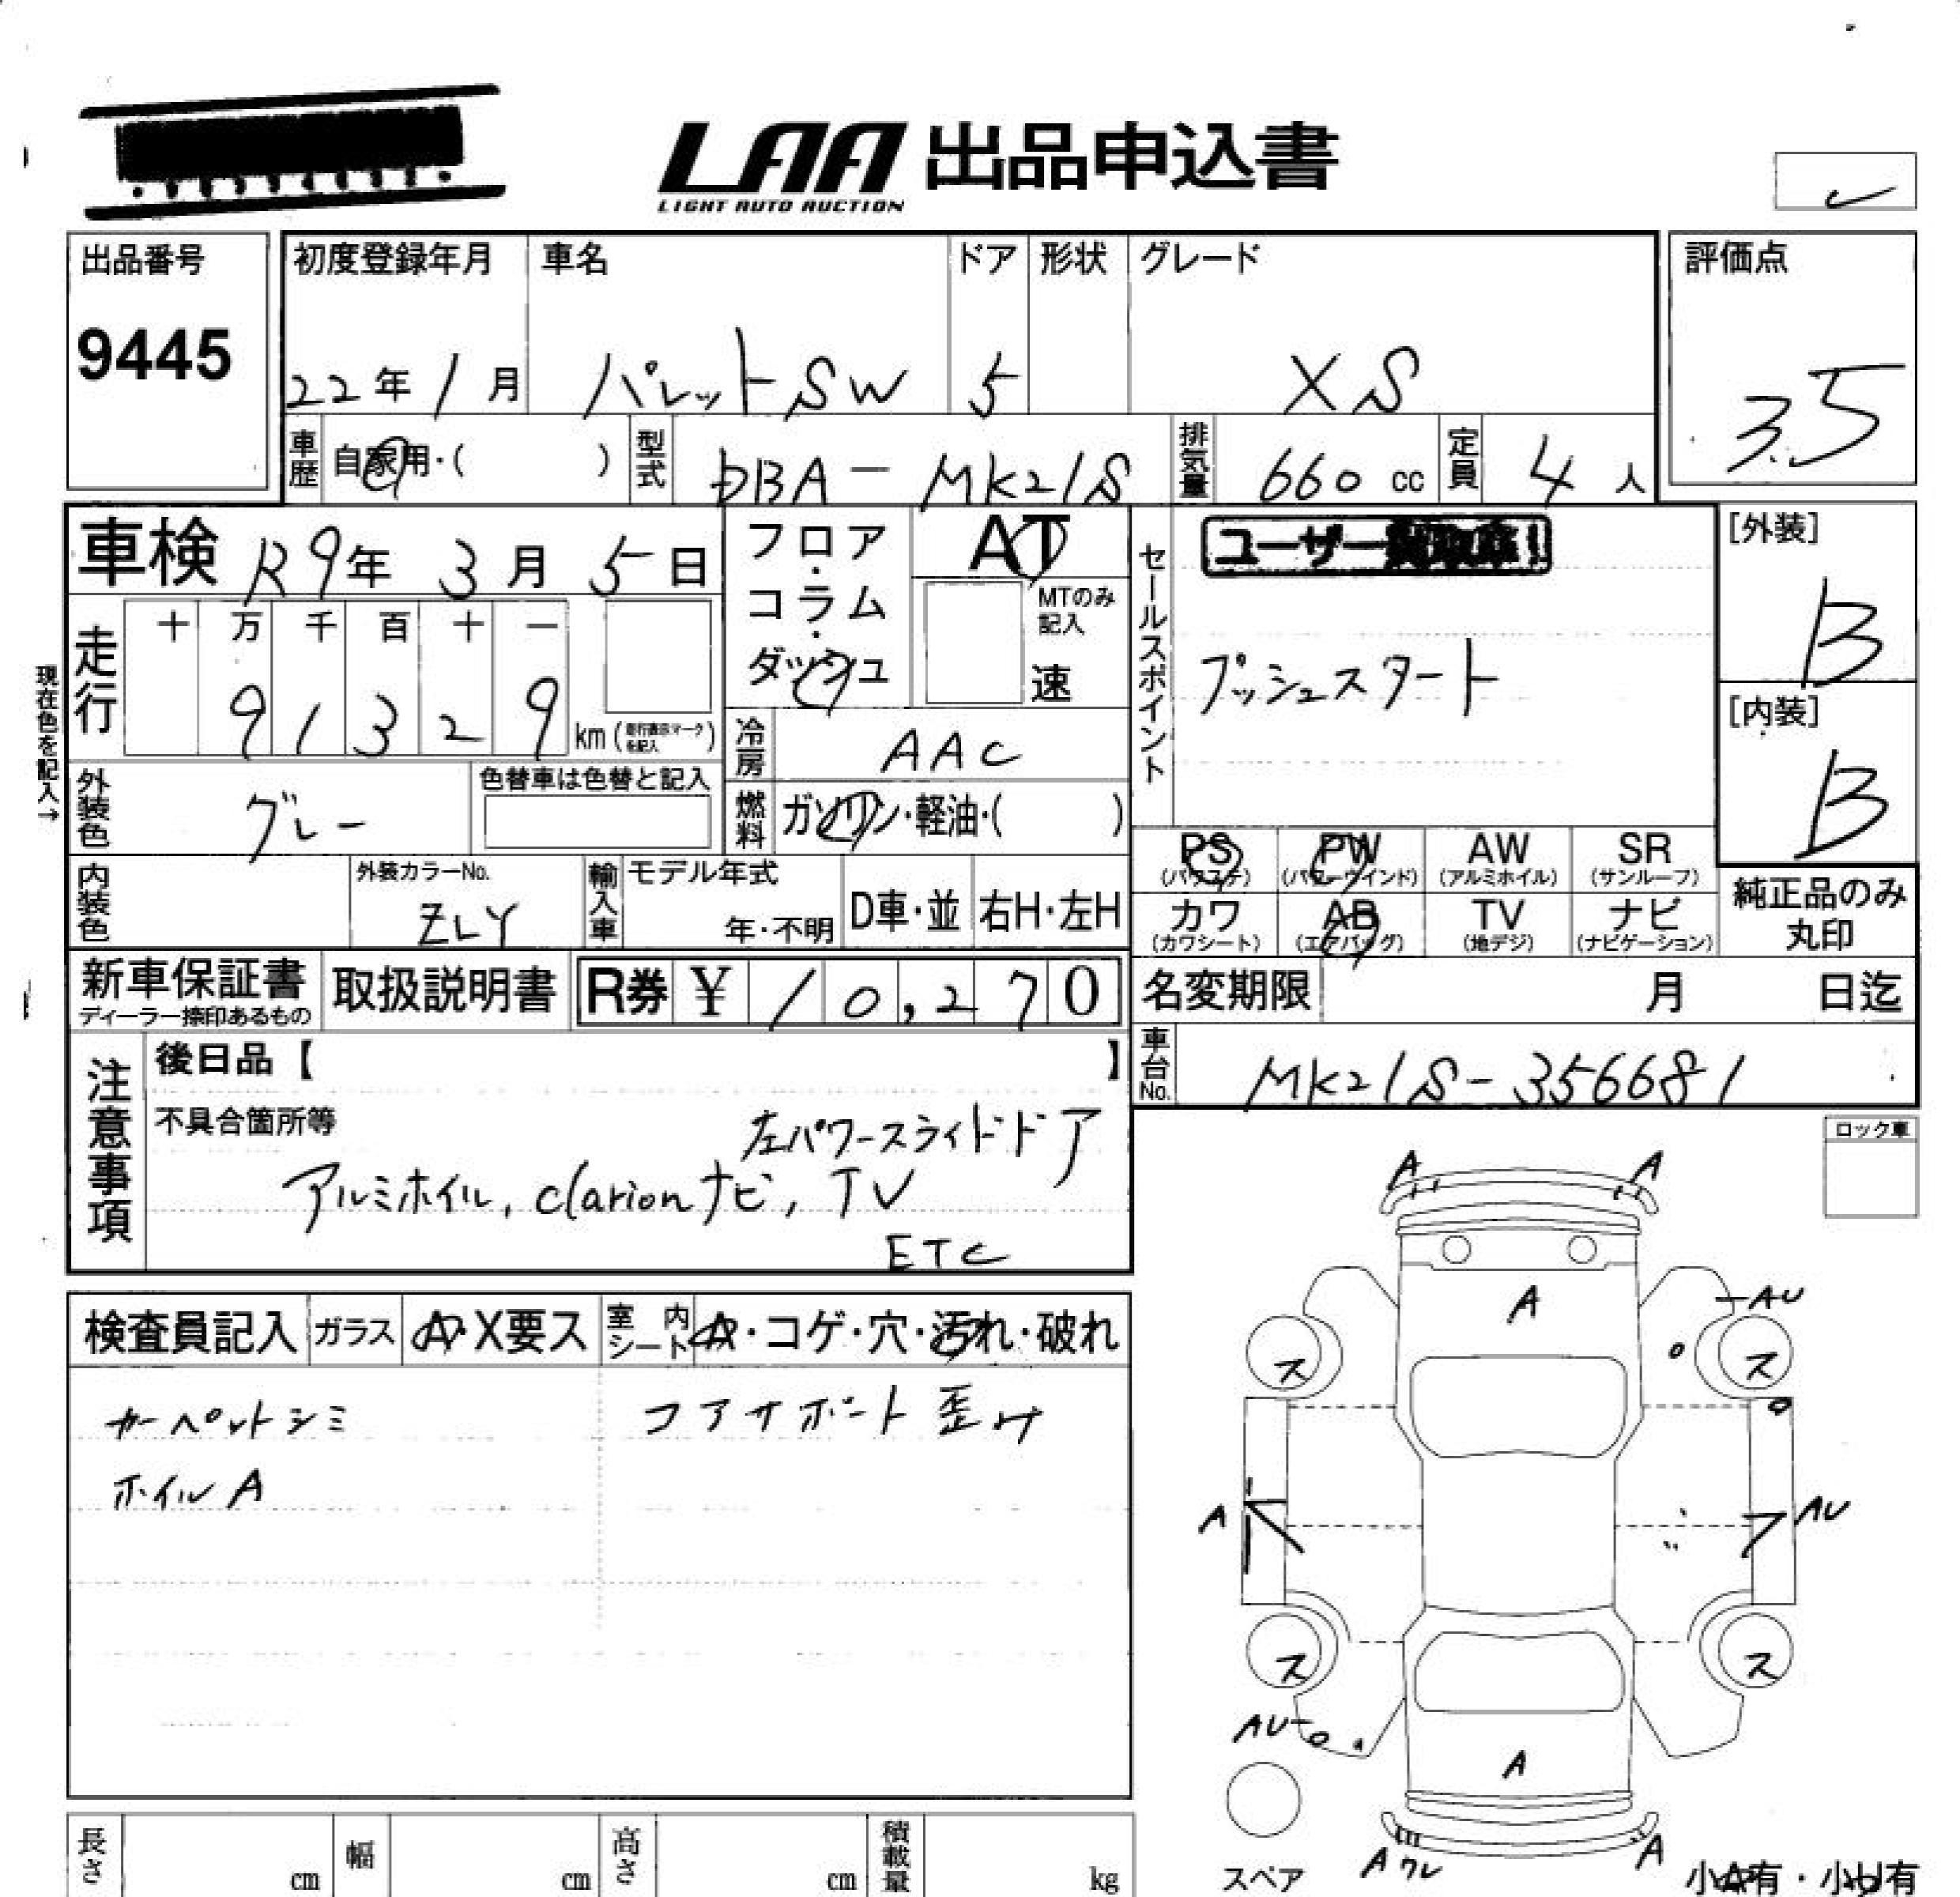 LAA 出品申込書
LIGHT AUTO AUCTION
出品番号
9445
初度登録年月
22年1月
車名
パレットSW
ドア
5
形状
グレード
XS
評価点
3.5
車歴
自家用・( )
型式
DBA-MK21S
排気量
660 cc
定員
4 人
車検 R9年 3月 5日
フロア・コラム・ダッシュ
AT
MTのみ記入
速
セールスポイント
ユーザー買取車!
プッシュスタート
[外装]
B
[内装]
B
現在色を記入→
走行
十 万 千 百 十 一
9 1 3 2 9 km (走行表示マークを記入)
冷房
AAC
外装色
グレー
色替車は色替と記入
燃料
ガソリン・軽油・( )
PS (パワステ)
PW (パワーウインド)
AW (アルミホイル)
SR (サンルーフ)
カワ (カワシート)
AB (エアバッグ)
TV (地デジ)
ナビ (ナビゲーション)
純正品のみ丸印
内装色
外装カラーNo.
ZLY
輸入車
モデル年式
年・不明
D車・並
右H・左H
新車保証書
ディーラー捺印あるもの
取扱説明書
R券 ¥ 10,270
名変期限 月 日迄
車台No.
MK21S-356681
注意事項
後日品【 】
不具合箇所等
左パワースライドドア
アルミホイル, clarionナビ, TV
ETC
ロック車
検査員記入
ガラス
A・X要ス
室内シート
A・コゲ・穴・汚れ・破れ
カーペットシミ
コアサポート歪み
ホイルA
A A
A
AU
ス ス
A
AU
ス ス
AU
A
スペア
Aワレ
A
小A有・小U有
長さ cm
幅 cm
高さ cm
積載量 kg